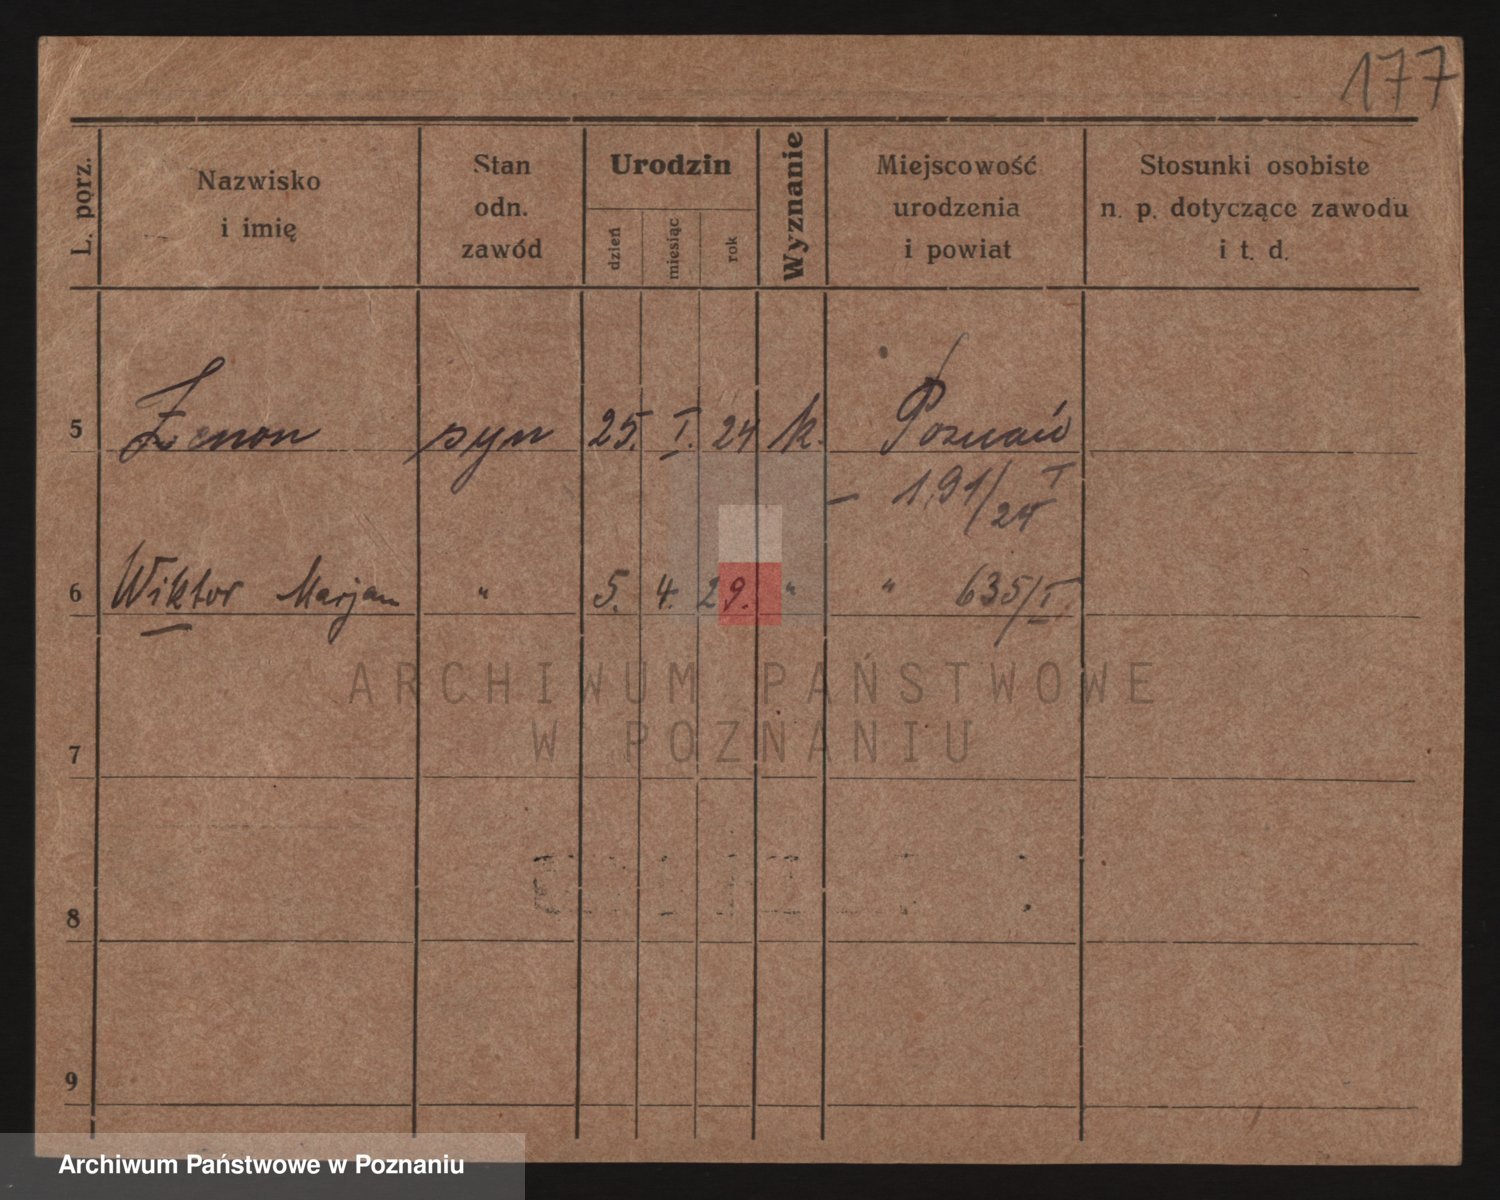 177
L. porz.
Nazwisko
i imię
Stan
odn.
zawód
Urodzin
dzień
miesiąc
rok
Wyznanie
Miejscowość
urodzenia
i powiat
Stosunki osobiste
n. p. dotyczące zawodu
i t. d.
5 Zenon syn 25. I. 24 k. Poznań
— 191/I 24
6 Wiktor Marjan " 5. 4. 29. " " 635/I
ARCHIWUM PAŃSTWOWE
W POZNANIU
7
8
9
Archiwum Państwowe w Poznaniu